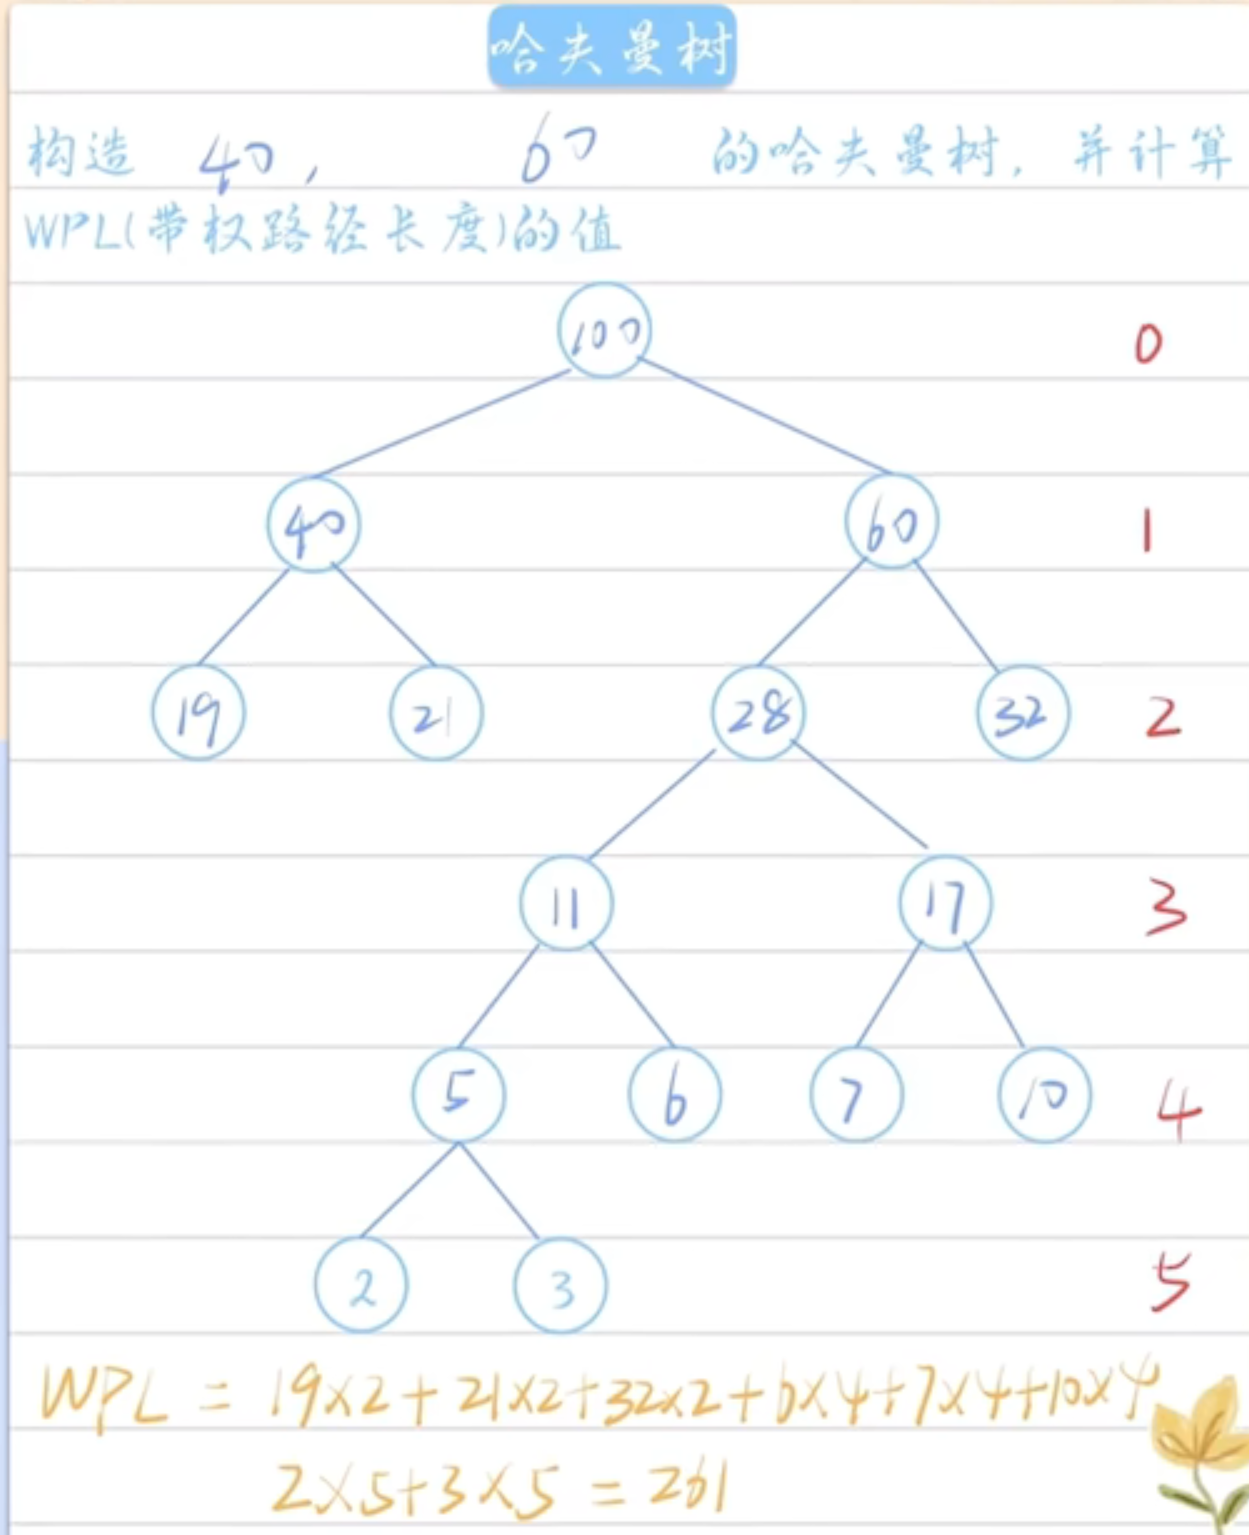 哈夫曼树
构造 40, 60 的哈夫曼树, 并计算
WPL(带权路径长度)的值
100 0
40 60 1
19 21 28 32 2
11 17 3
5 6 7 10 4
2 3 5
WPL = 19×2+21×2+32×2+6×4+7×4+10×4
2×5+3×5=261